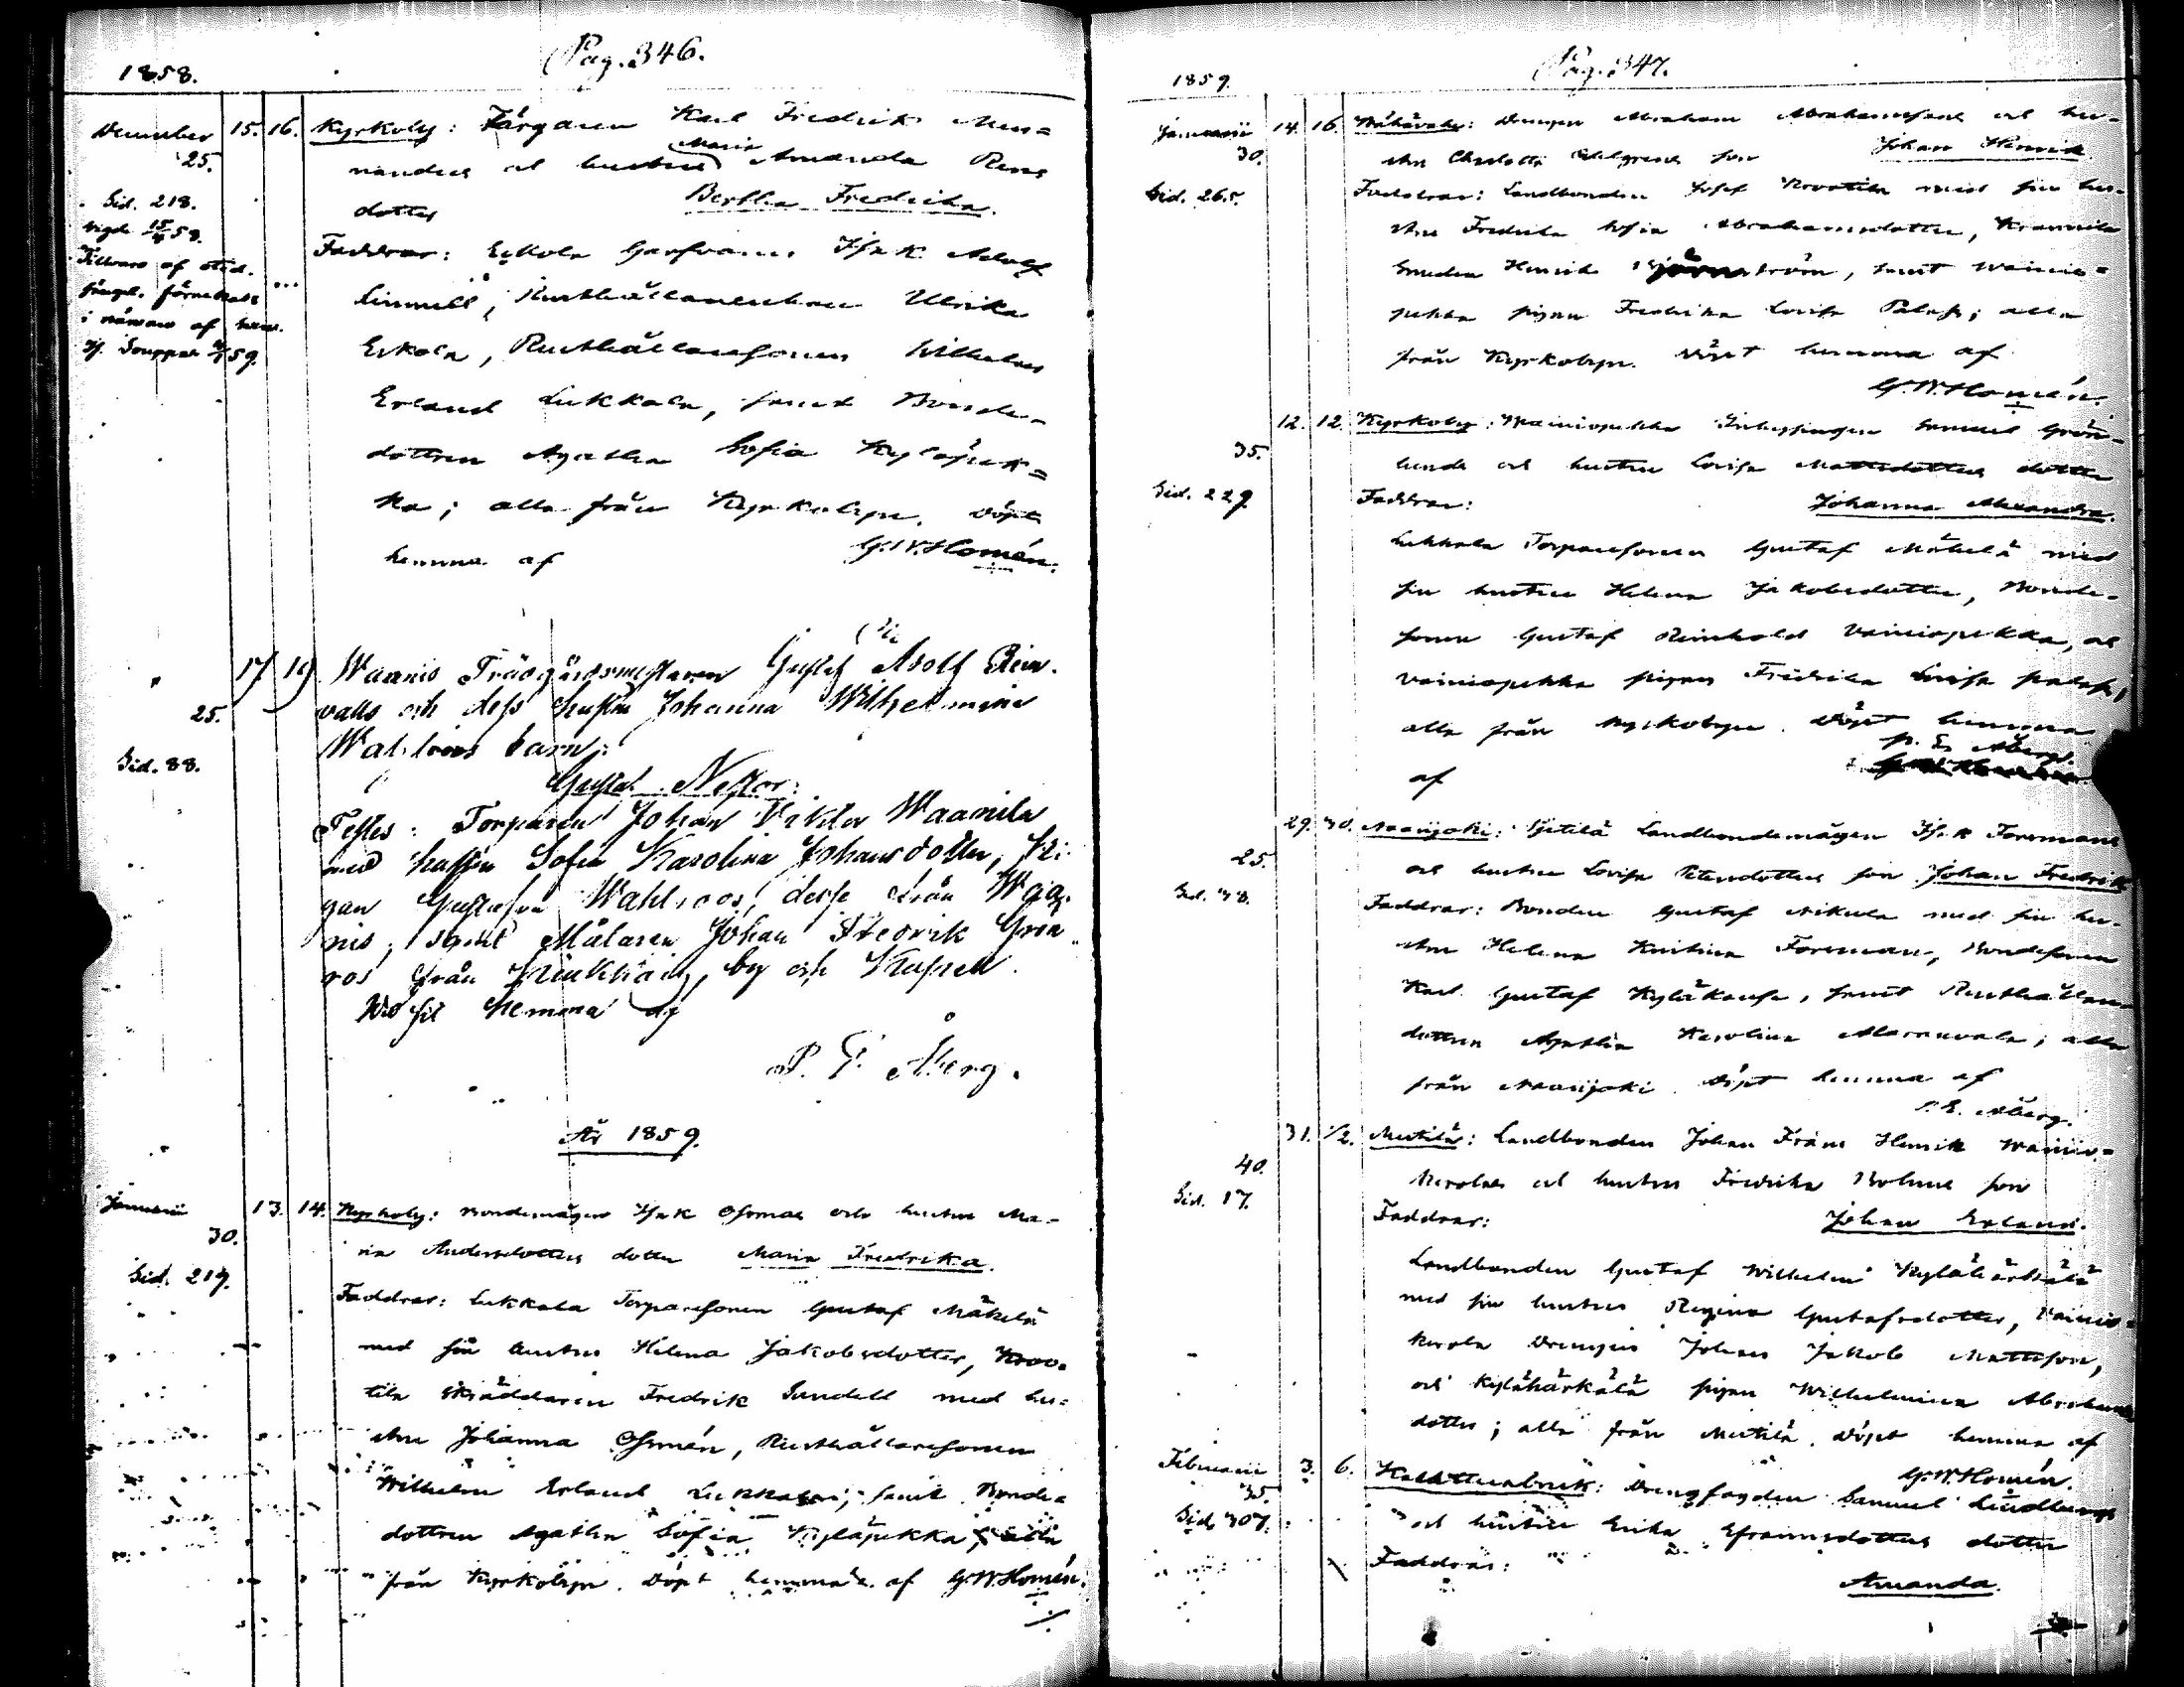 Pag. 346.
1858.
December 15. 16. Kyrkoby: Färgaren Karl Fredrik Men=
25.
nanders och hustrus Maria Amanda
dotter Bertha Fredrika.
Sid. 218.
Faddrar: Eskola Garfvaren Isak Adolf
Linnell, Rusthållareenkan Ulrika
Eskola, Rusthållaresonen Wilhelm
Erland Lukkala, samt Bonde-
dottren Agatha Sofia Kyläpek=
ka; alla från Kyrkobyn. Döpt
hemma af G.W. Homén.
17 19 Waanis Trädgårdsmästaren Gustaf Adolf Rein-
25.
valls och dess hustru Johanna Wilhelmina
Wahlroos barn:
Sid. 88.
Gustaf Nestor.
Testes: Torparen Johan Viktor Waanila
med hustru Sofia Karolina Johansdotter, Pi-
gan Gustafva Wahlroos, desse från Waa-
nis, samt Målaren Johan Fredrik Grön
roos från by och Kapell.
hemma af
P. E. Åberg.
År 1859.
Januarii 13. 14. Kyrkoby: Bondemågen Isak Osmas och hustru Ma-
30.
ria Andersdotters dotter Maria Fredrika.
Sid. 219.
Faddrar: Lukkala Torparesonen Gustaf Mäkelä
med sin hustru Helena Jakobsdotter, Kroo-
tila Skräddaren Fredrik Sundell med hu-
stru Johanna Osmén, Rusthållaresonen
Wilhelm Erland Lukkala, samt Bonde-
dottren Agatha Sofia Kyläpekka; alla
från Kyrkobyn. Döpt hemma af G.W. Homén.
Pag. 347.
1859.
Januarii 14. 16. Drengen Abraham Abrahamssons och hu-
30.
strus Charlotta Ahlgrens son Johan Henrik.
Sid. 265.
Faddrar: Landbonden Josef Krootila med sin hu-
stru Fredrika Sofia Abrahamsdotter,
Smeden Henrik Björnström, samt Wainio=
pekka pigan Fredrika Lovisa Palass; alla
från Kyrkobyn. Döpt hemma af
G.W. Homén.
12. 12. Kyrkoby: Wainiopekka Inhysingen Samuel Grön-
35.
lunds och hustru Lovisa Mattsdotters dotter
Sid. 229.
Faddrar: Johanna Alexandra.
Lukkala Torparesonen Gustaf Mäkelä med
sin hustru Helena Jakobsdotter, Bonde-
sonen Gustaf Reinhold Vainiopekka, och
Vainiopekka pigan Fredrika Lovisa Palass;
alla från Kyrkobyn. Döpt hemma
af P. E. Åberg.
29. 30. Naarijoki: Sjetilä Landbondemågen Isak Foremans
25.
och hustru Lovisa Petersdotters son Johan Fredrik
Sid. 38.
Faddrar: Bonden Gustaf Nikula med sin hu-
stru Helena Kristina Foreman, Bondesonen
Karl Gustaf Kyläkausa, samt Rusthållare-
dottren Agatha Karolina Alarauvala; alla
från Naarijoki. Döpt hemma af
P. E. Åberg.
31. 1/2. Mertilä: Landbonden Johan Frans Henrik Wainio=
40.
kerolas och hustrus Fredrika Bohms son
Sid. 17.
Faddrar: Johan Erland.
Landbonden Gustaf Wilhelm Kylähärkälä
med sin hustru Regina Gustafsdotter, Vainio=
kerola Drengen Johan Jakob Mattsson,
och Kylähärkälä pigan Wilhelmina Abrahams
dotter; alla från Mertilä. Döpt hemma af
G.W. Homén.
Februarii 3. 6. Drengfogden Samuel Lindbergs
35.
Sid. 307.
och hustru Erika Efraimsdotters dotter
Faddrar:
Amanda.